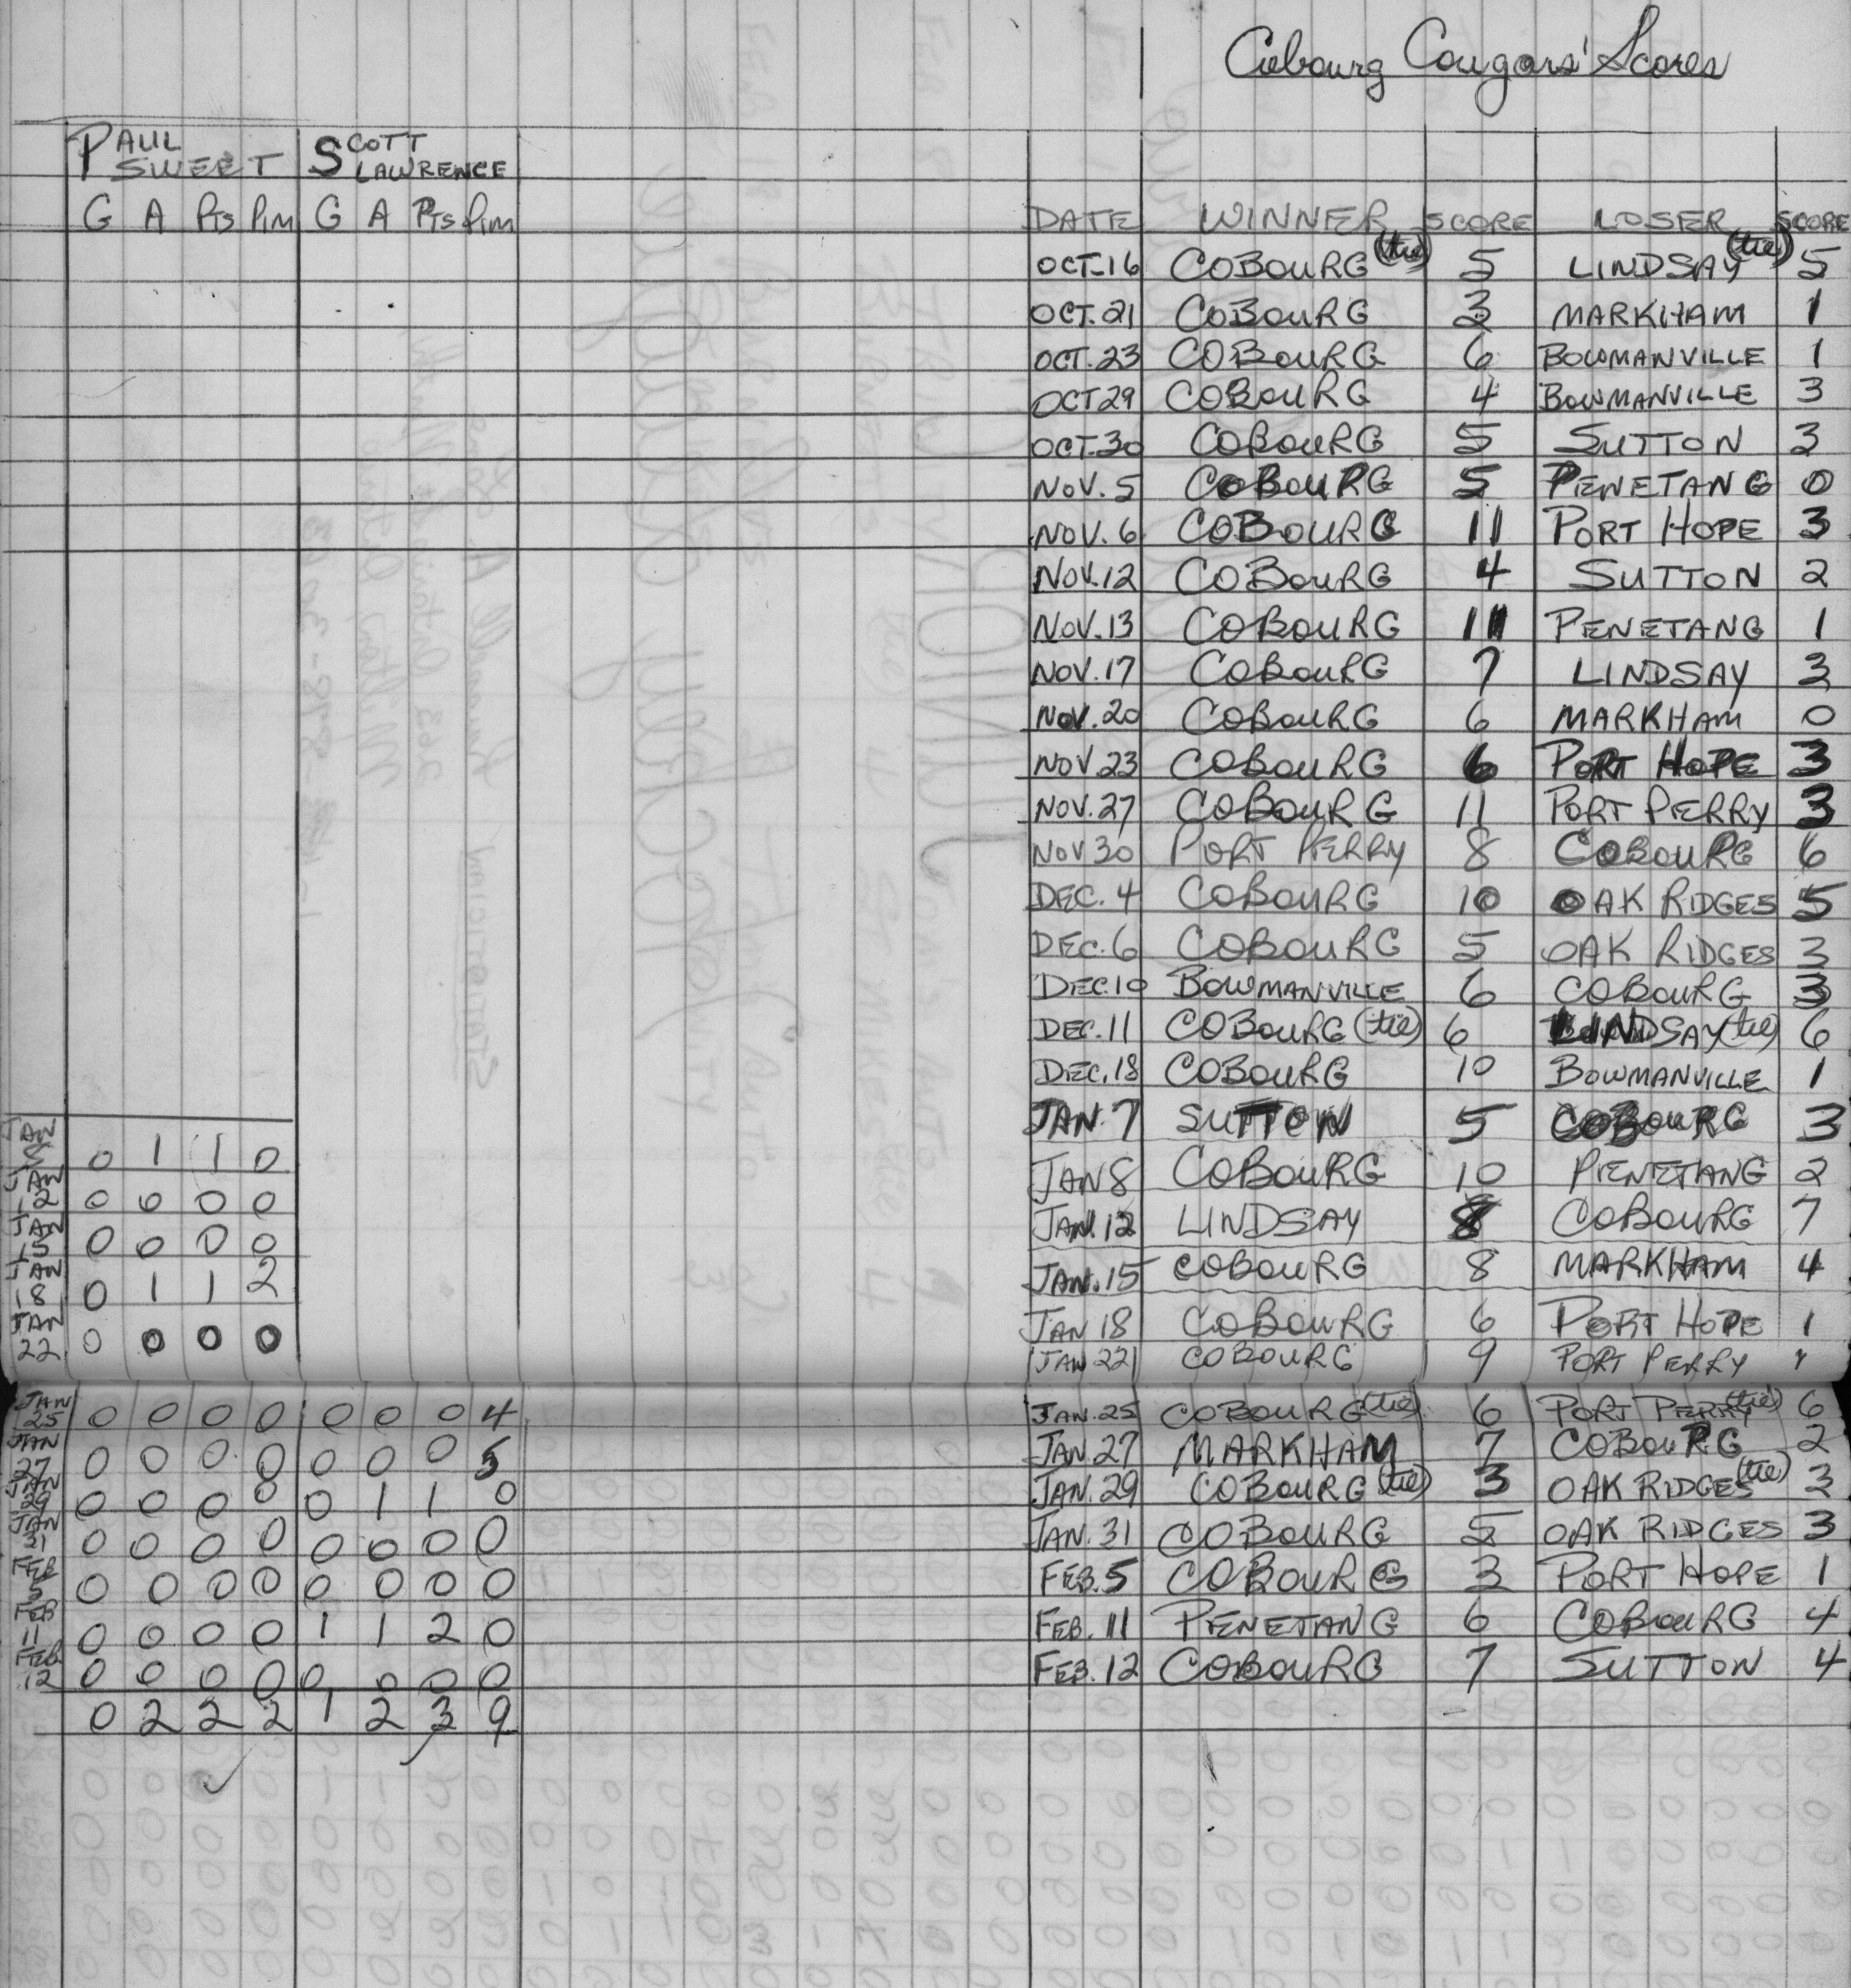 Cobourg Cougars' Scores
PAUL SWEET SCOTT LAWRENCE
G A Pts Pim G A Pts Pim
DATE WINNER SCORE LOSER SCORE
OCT.16 COBOURG (tie) 5 LINDSAY (tie) 5
OCT.21 COBOURG 3 MARKHAM 1
OCT.23 COBOURG 6 BOWMANVILLE 1
OCT 29 COBOURG 4 BOWMANVILLE 3
OCT.30 COBOURG 5 SUTTON 3
NOV.5 COBOURG 5 PENETANG 0
NOV.6 COBOURG 11 PORT HOPE 3
NOV.12 COBOURG 4 SUTTON 2
NOV.13 COBOURG 11 PENETANG 1
NOV.17 COBOURG 7 LINDSAY 3
NOV.20 COBOURG 6 MARKHAM 0
NOV.23 COBOURG 6 PORT HOPE 3
NOV.27 COBOURG 11 PORT PERRY 3
NOV 30 PORT PERRY 8 COBOURG 6
DEC.4 COBOURG 10 OAK RIDGES 5
DEC.6 COBOURG 5 OAK RIDGES 3
DEC.10 BOWMANVILLE 6 COBOURG 3
DEC.11 COBOURG (tie) 6 LINDSAY (tie) 6
DEC.18 COBOURG 10 BOWMANVILLE 1
JAN.7 SUTTON 5 COBOURG 3
JAN 0 1 1 0 JAN 8 COBOURG 10 PENETANG 2
JAN 12 0 0 0 0 JAN.12 LINDSAY 8 COBOURG 7
JAN 15 0 0 0 0 JAN.15 COBOURG 8 MARKHAM 4
JAN 18 0 1 1 2 JAN 18 COBOURG 6 PORT HOPE 1
JAN 22 0 0 0 0 JAN 22 COBOURG 9 PORT PERRY
JAN 25 0 0 0 0 0 0 0 4 JAN.25 COBOURG (tie) 6 PORT PERRY (tie) 6
JAN 27 0 0 0 0 0 0 0 5 JAN.27 MARKHAM 7 COBOURG 2
JAN 29 0 0 0 0 0 1 1 0 JAN.29 COBOURG (tie) 3 OAK RIDGES (tie) 3
JAN 31 0 0 0 0 0 0 0 0 JAN.31 COBOURG 5 OAK RIDGES 3
FEB 5 0 0 0 0 0 0 0 0 FEB.5 COBOURG 3 PORT HOPE 1
FEB 11 0 0 0 0 1 1 2 0 FEB.11 PENETANG 6 COBOURG 4
FEB 12 0 0 0 0 0 0 0 0 FEB.12 COBOURG 7 SUTTON 4
0 2 2 2 1 2 3 9